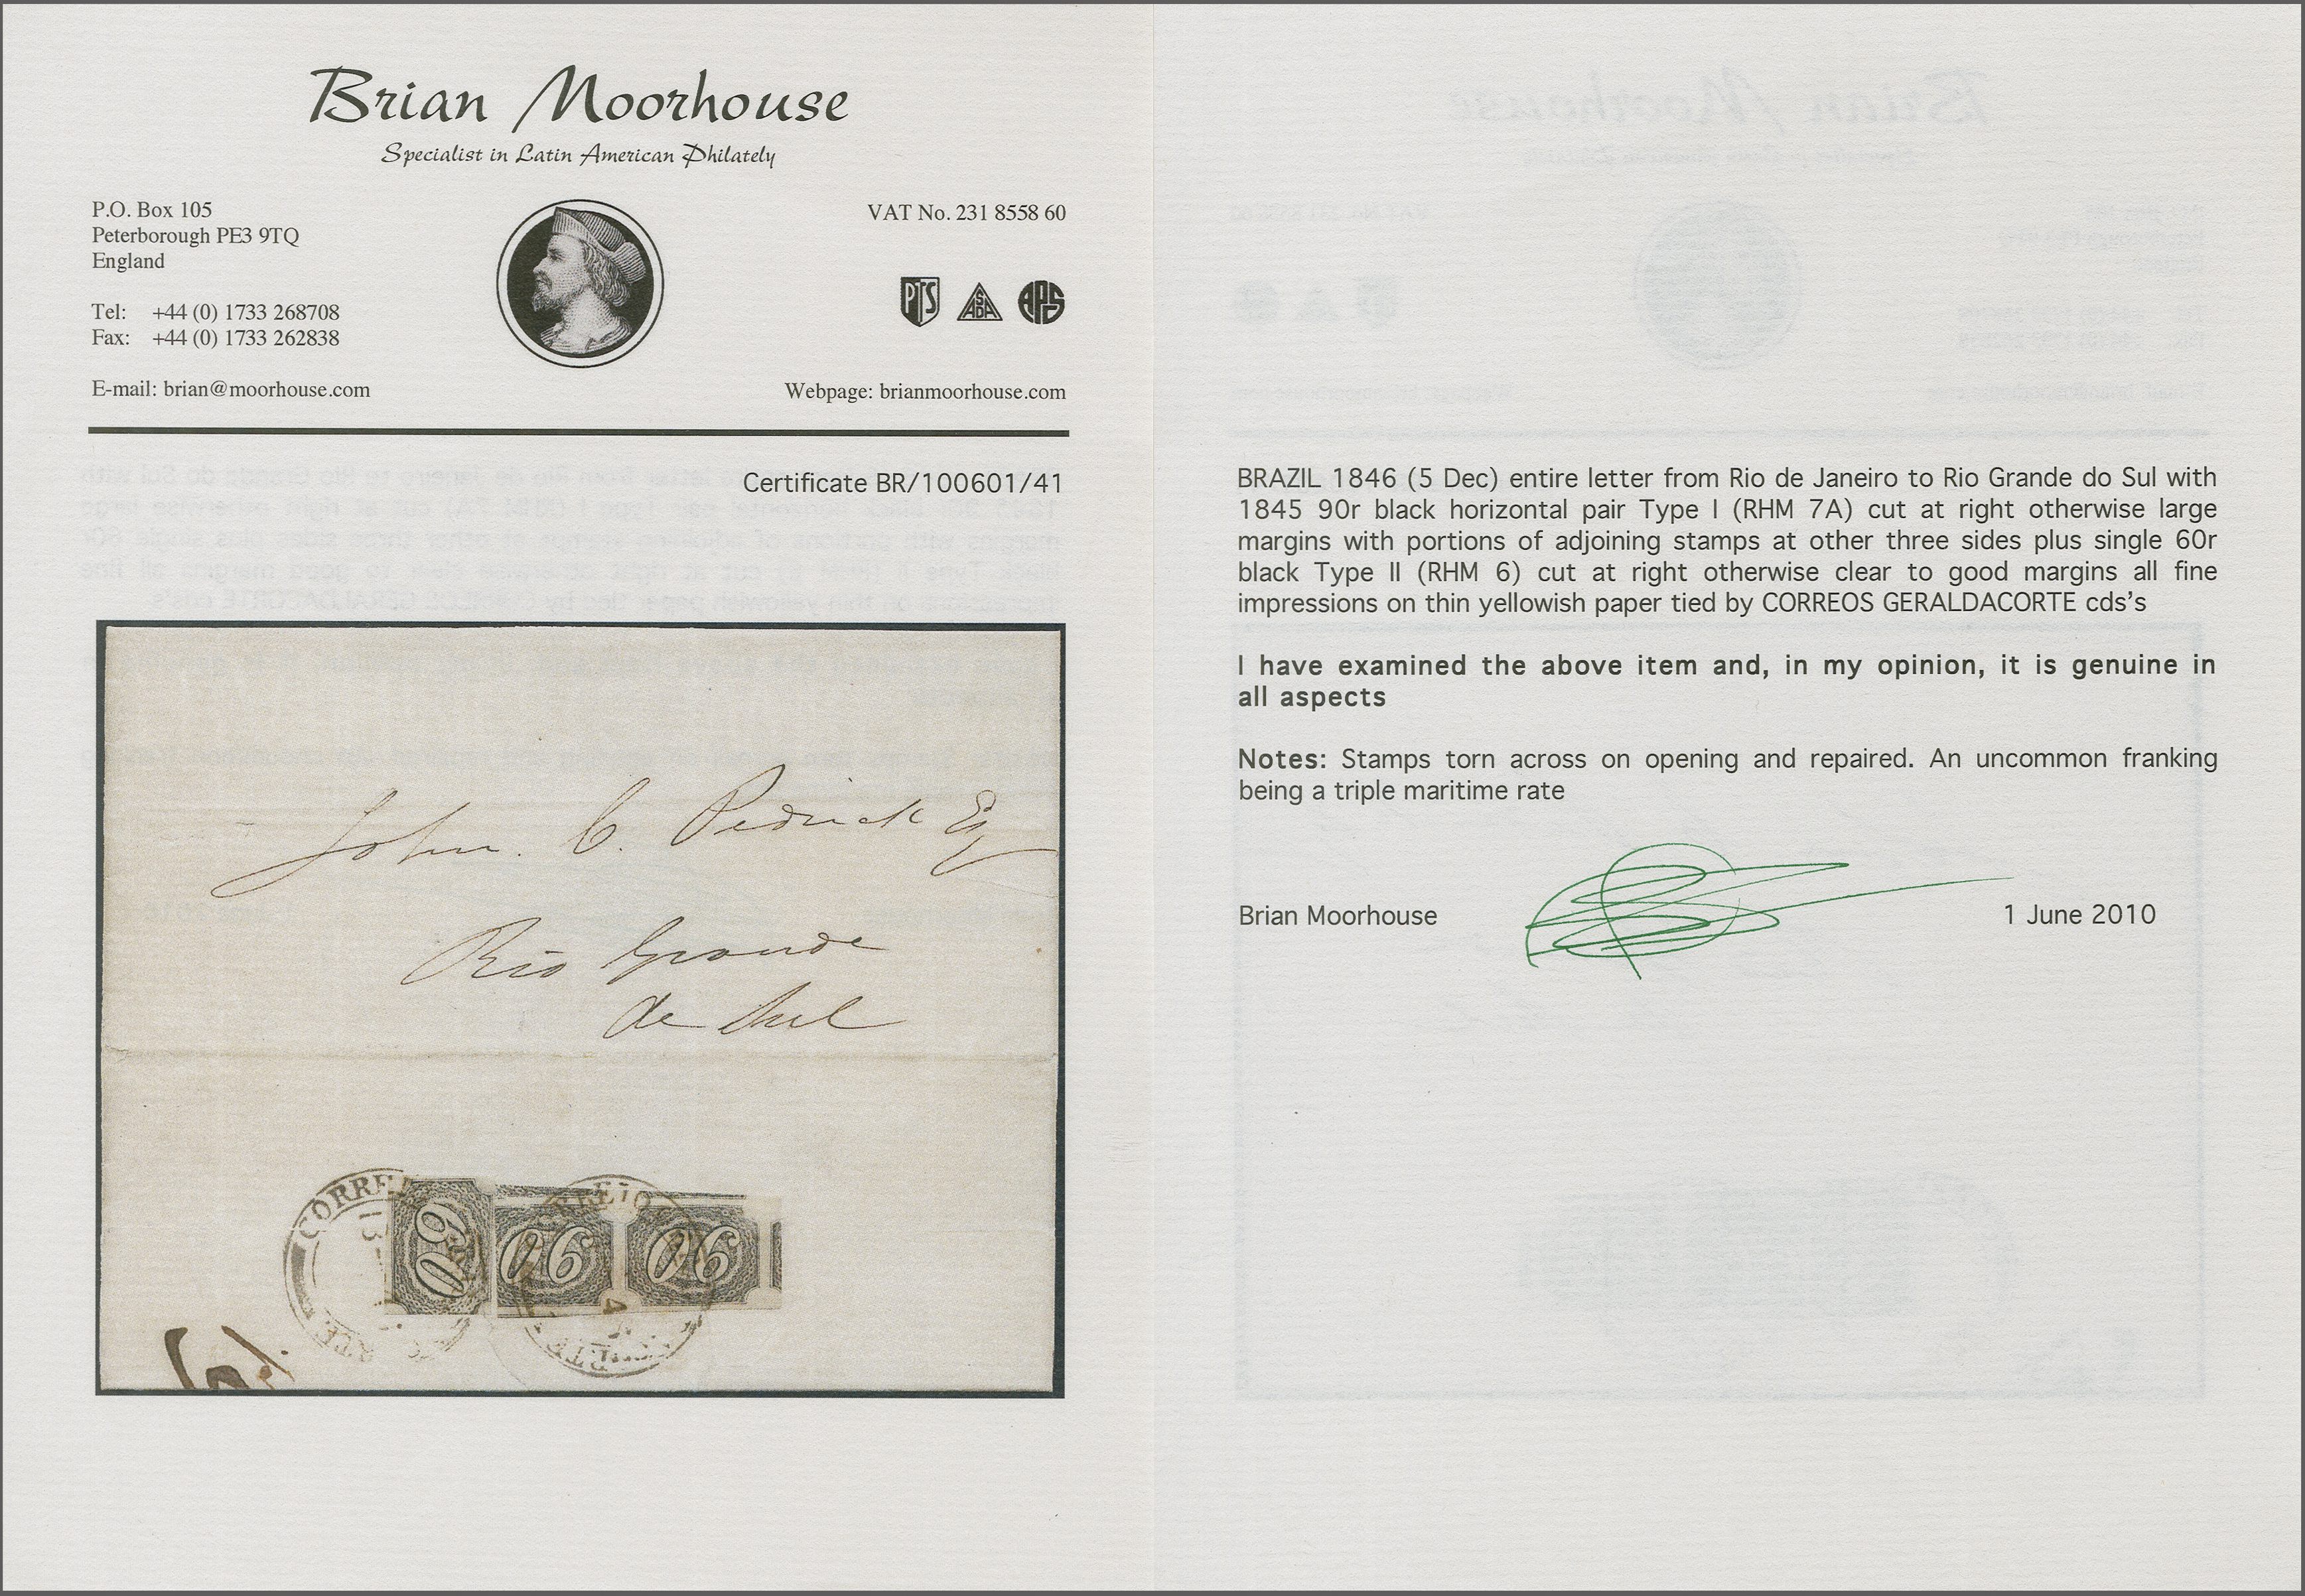 Brian Moorhouse
Specialist in Latin American Philately
P.O. Box 105
Peterborough PE3 9TQ
England
Tel: +44 (0) 1733 268708
Fax: +44 (0) 1733 262838
E-mail: brian@moorhouse.com
VAT No. 231 8558 60
PTS ASDA APS
Webpage: brianmoorhouse.com
Certificate BR/100601/41
John. C. Pedrick Esq
Rio Grande
de Sul
CORREIO
60 90 90
BRAZIL 1846 (5 Dec) entire letter from Rio de Janeiro to Rio Grande do Sul with
1845 90r black horizontal pair Type I (RHM 7A) cut at right otherwise large
margins with portions of adjoining stamps at other three sides plus single 60r
black Type II (RHM 6) cut at right otherwise clear to good margins all fine
impressions on thin yellowish paper tied by CORREOS GERALDACORTE cds's
I have examined the above item and, in my opinion, it is genuine in
all aspects
Notes: Stamps torn across on opening and repaired. An uncommon franking
being a triple maritime rate
Brian Moorhouse
1 June 2010